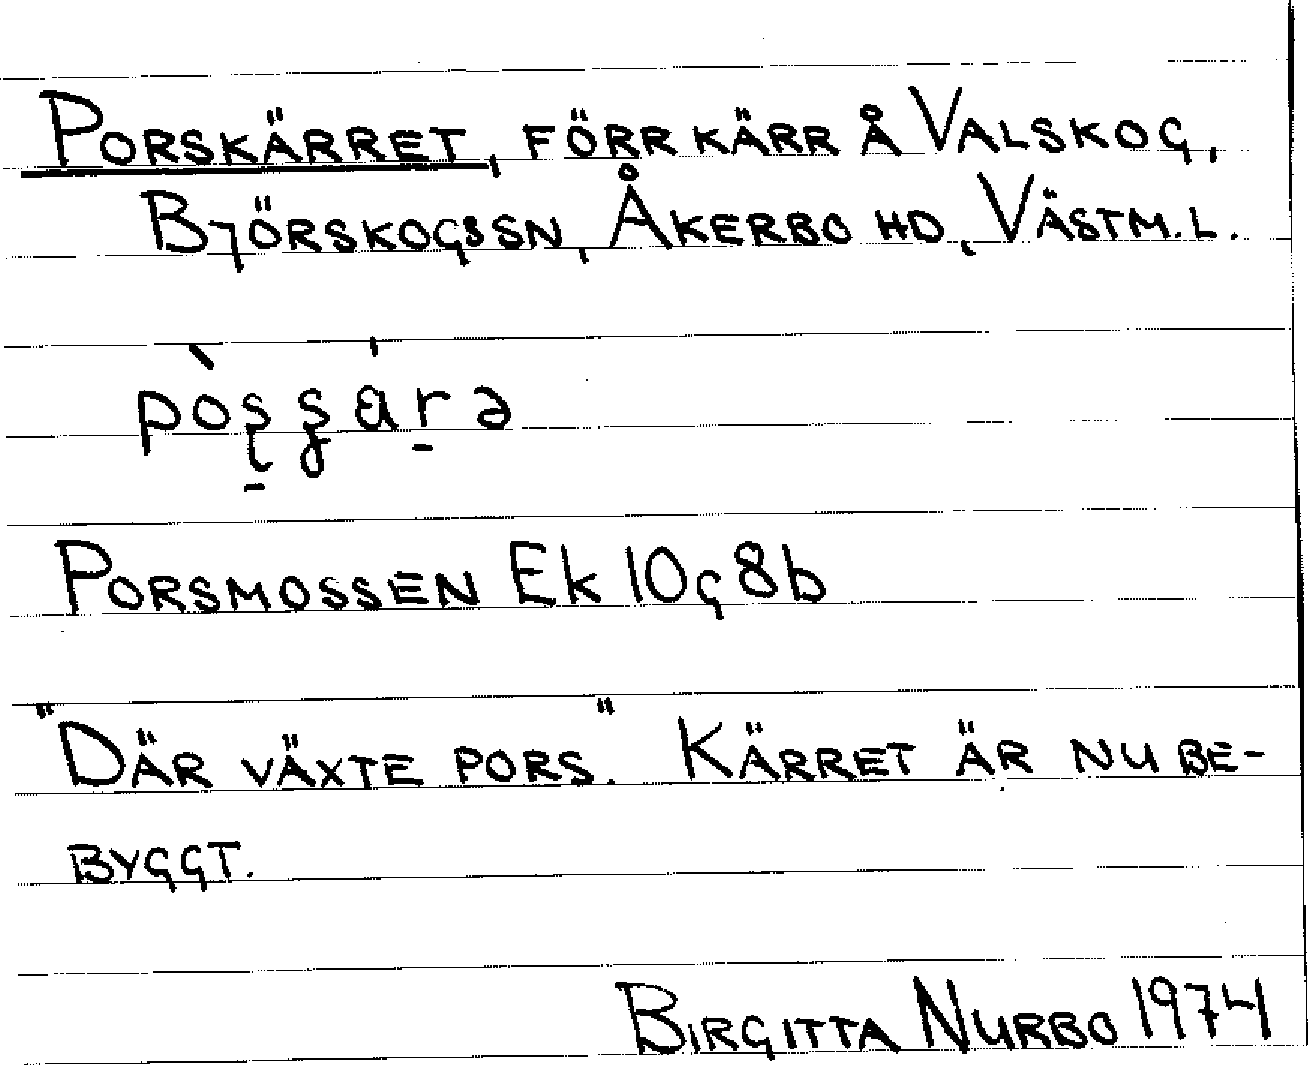 PORSKÄRRET, FÖRR KÄRR Å VALSKOG,
BJÖRSKOGS SN, ÅKERBO HD, VÄSTM.L.
PORSMOSSEN Ek 10g 8b
"DÄR VÄXTE PORS." KÄRRET ÄR NU BE-
BYGGT.
BIRGITTA NURBO 1974